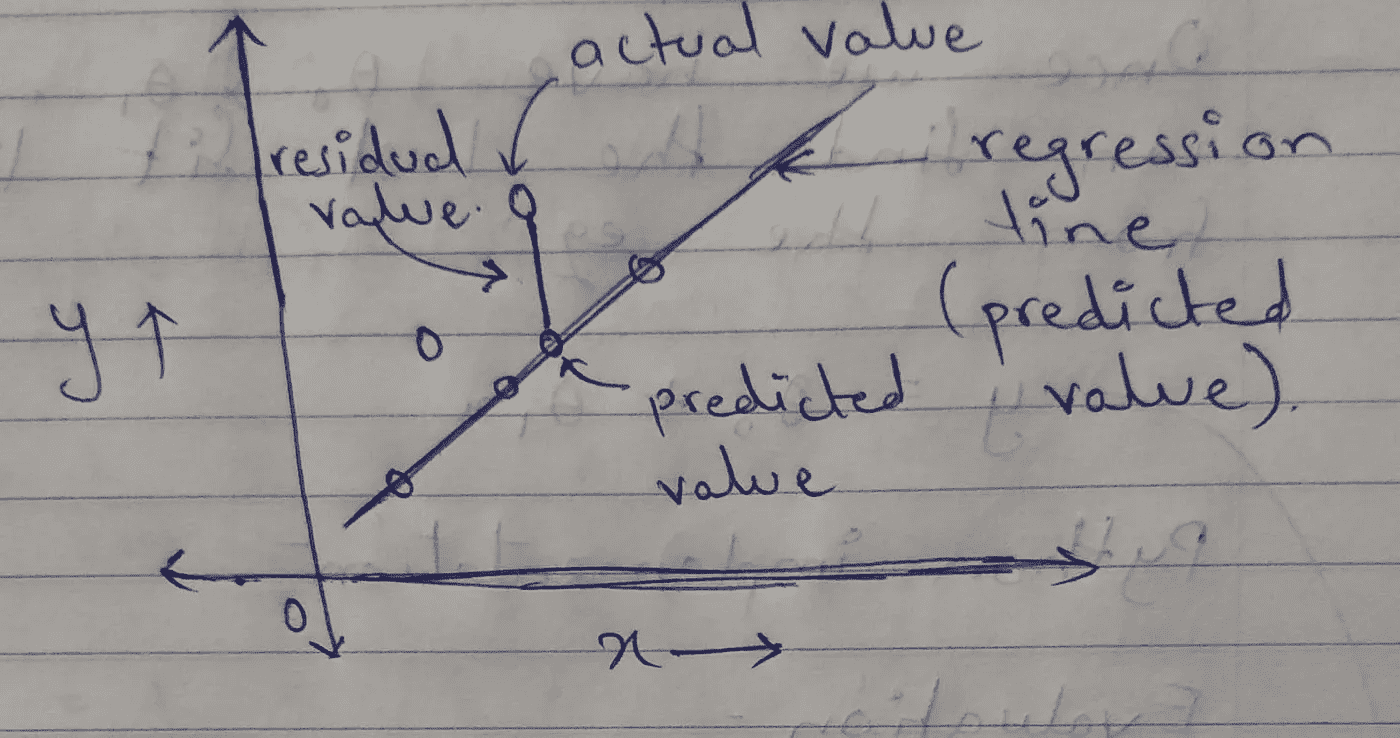 actual value
residual
value.
regression
line
(predicted
value).
y ↑
predicted
value
0
x →